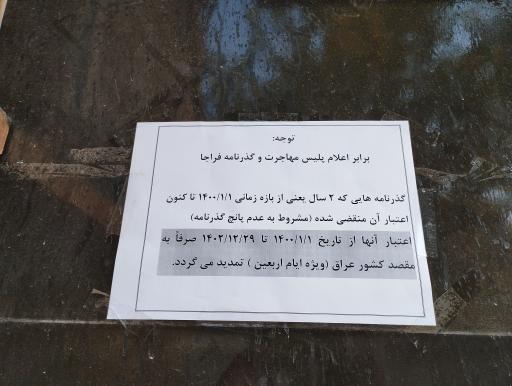 توجه:
برابر اعلام پلیس مهاجرت و گذرنامه فراجا
گذرنامه هایی که ۲ سال یعنی از بازه زمانی ۱۴۰۰/۱/۱ تا کنون
اعتبار آن منقضی شده (مشروط به عدم پانچ گذرنامه)
اعتبار آنها از تاریخ ۱۴۰۰/۱/۱ تا ۱۴۰۲/۱۲/۲۹ صرفاً به
مقصد کشور عراق (ویژه ایام اربعین ) تمدید می گردد.